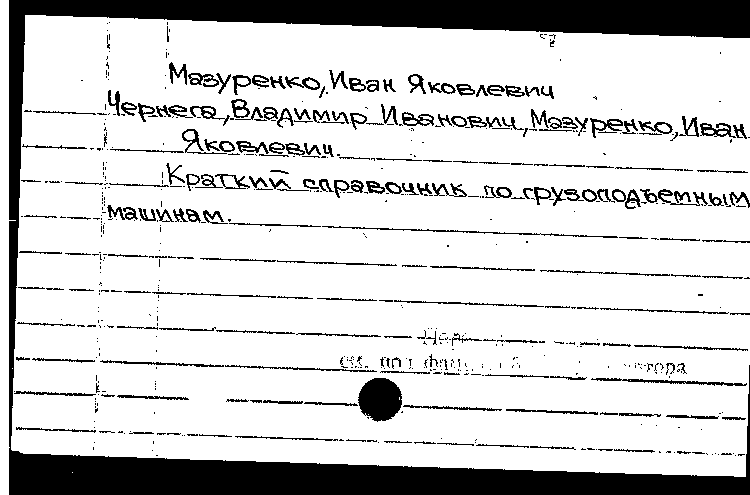 Мазуренко, Иван Яковлевич
Чернега, Владимир Иванович, Мазуренко, Иван
Яковлевич.
Краткий справочник по грузоподъемным
машинам.
см. под